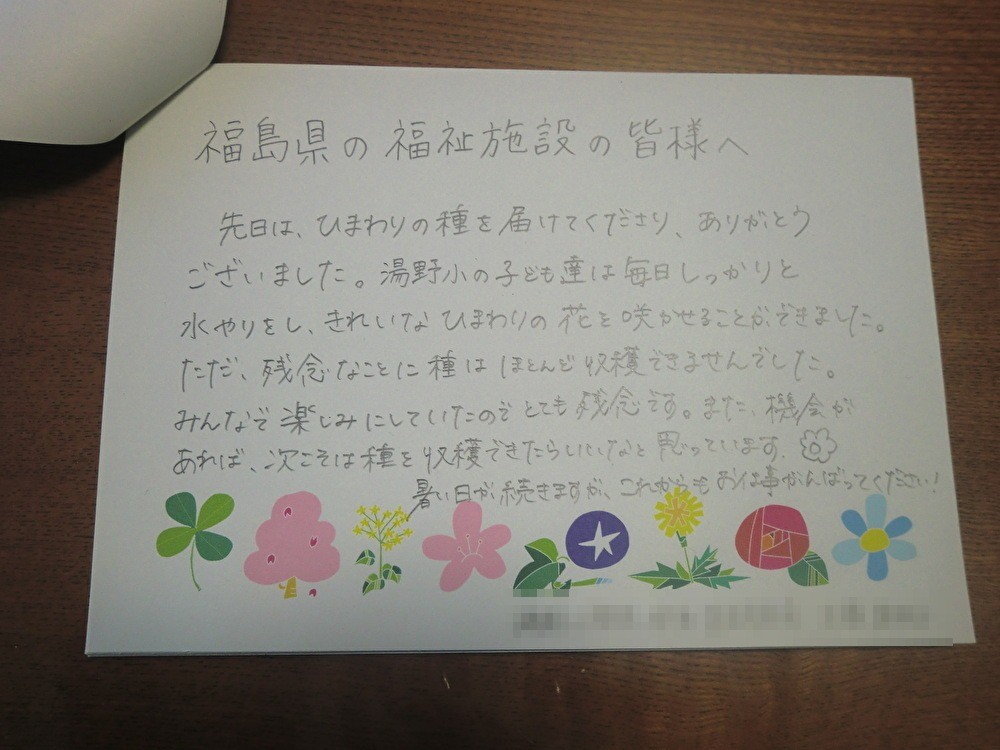 福島県の福祉施設の皆様へ
先日は、ひまわりの種を届けてくださり、ありがとう
ございました。湯野小の子ども達は毎日しっかりと
水やりをし、きれいなひまわりの花を咲かせることができました。
ただ、残念なことに種はほとんど収穫できませんでした。
みんなで楽しみにしていたのでとても残念です。また、機会が
あれば、次こそは種を収穫できたらいいなと思っています。
暑い日が続きますが、これからもお仕事がんばってください!